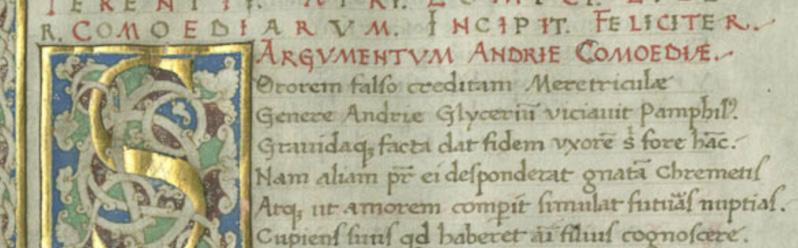 R. COMOEDIARVM. INCIPIT. FELICITER.
ARGVMENTVM ANDRIE COMOEDIÆ.
SOrorem falso creditam Meretriculæ
Genere Andrie Glyceriū viciauit Pamphilꝰ.
Grauidaqꝫ facta dat fidem vxorē s̄ fore hāc.
Nam aliam pr̄ ei desponderat gnatā Chremetis
Atqꝫ ut amorem compit simulat futuās nuptias.
Cupiens suus qd haberet ai filius cognoscere.